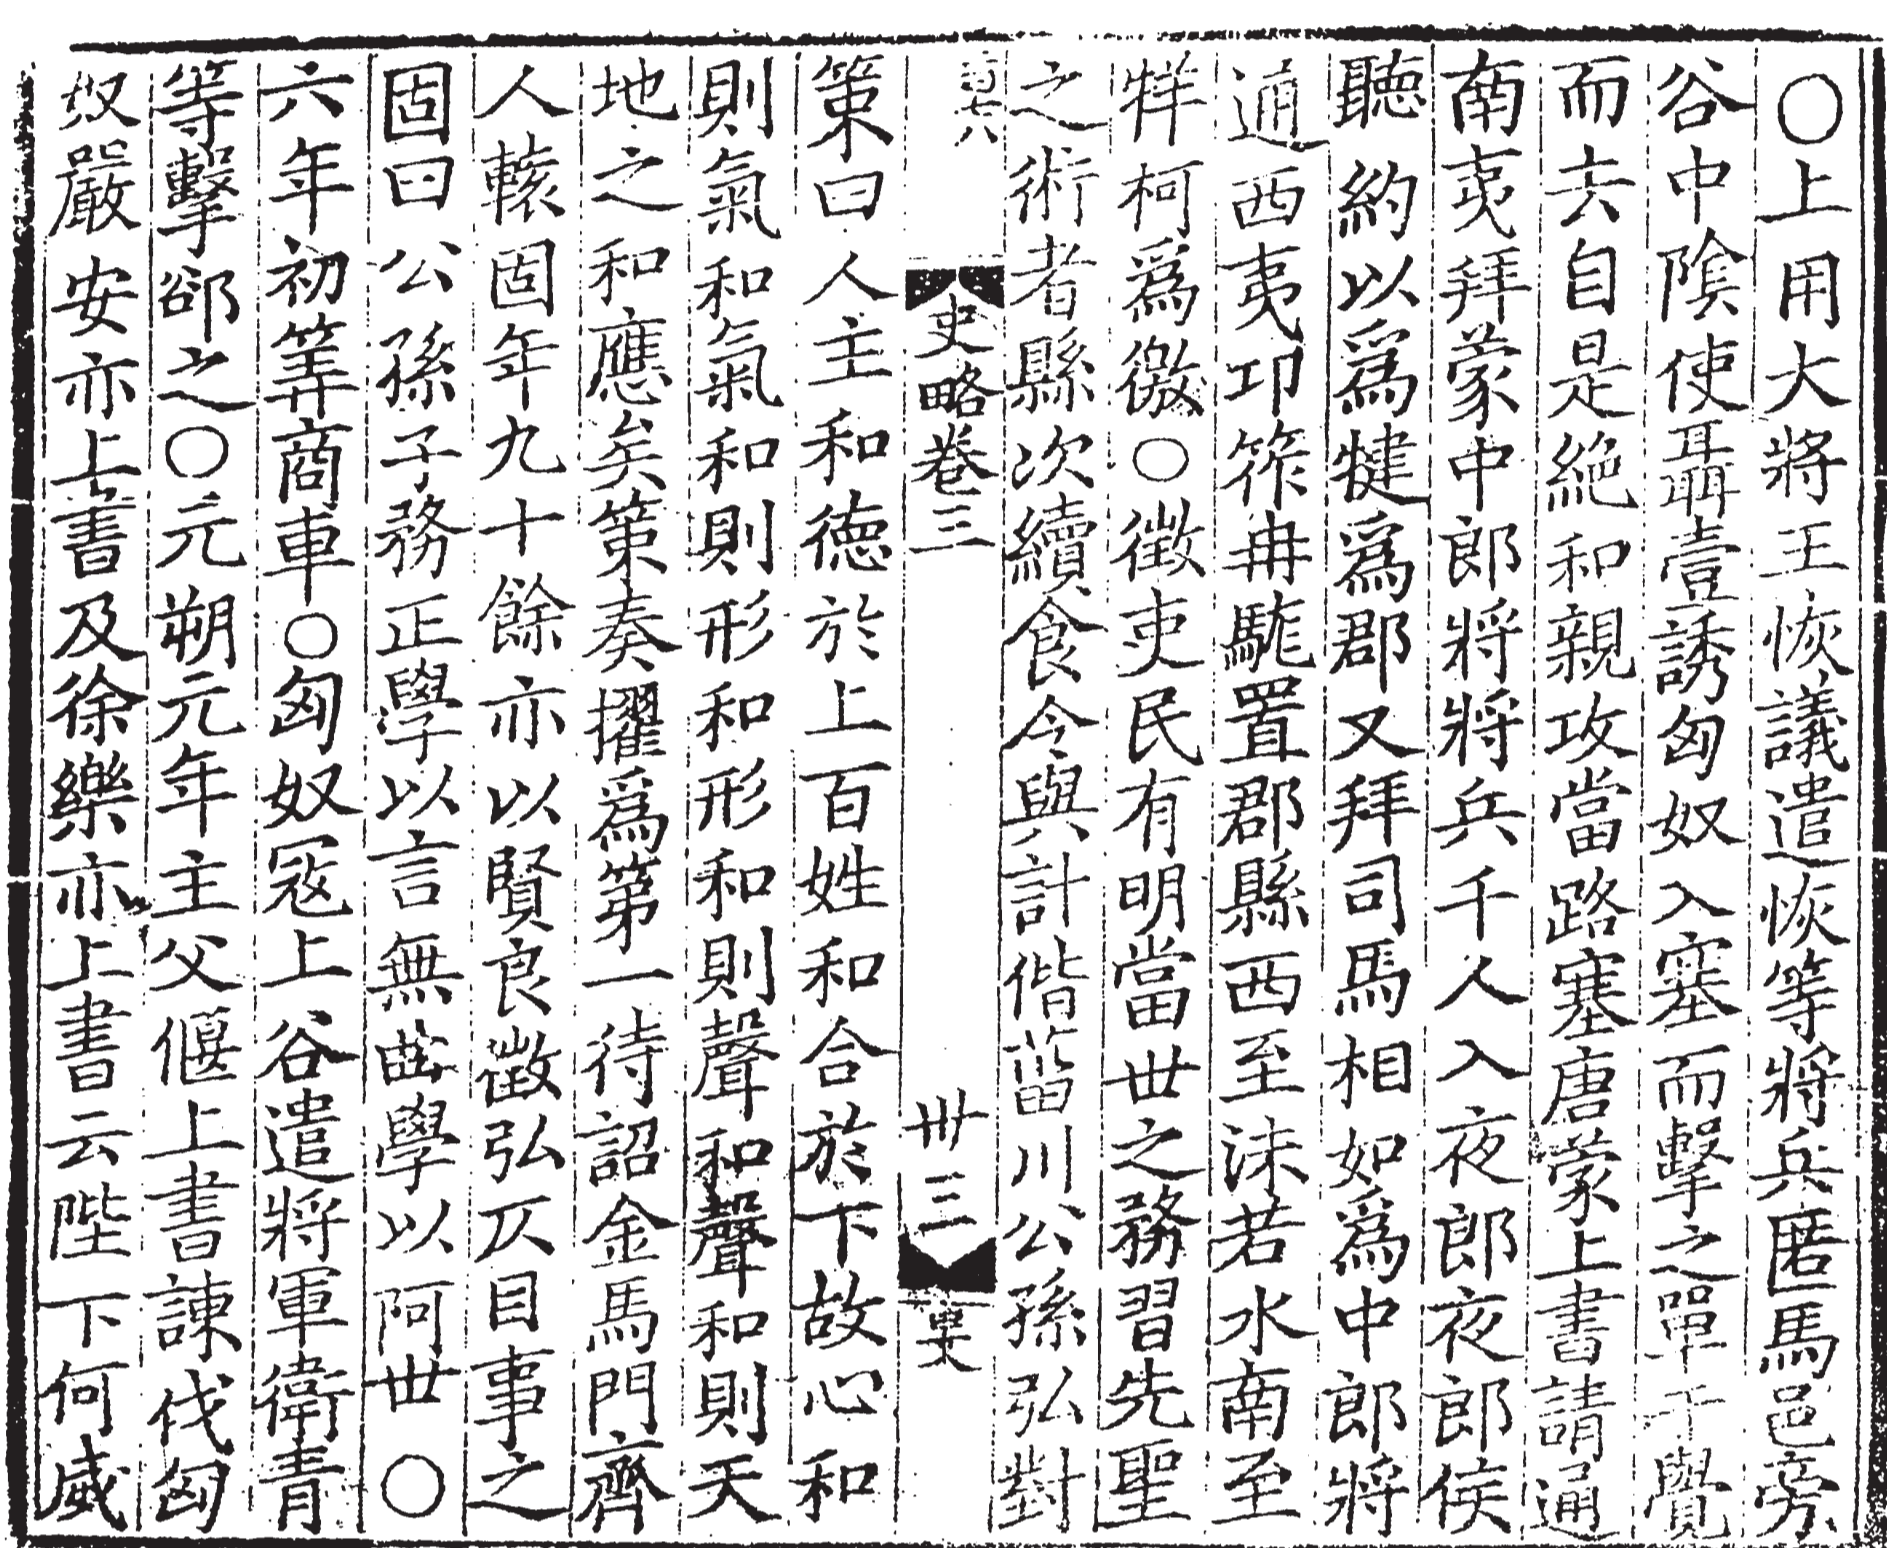 ○上用大將王恢議遣恢等將兵匿馬邑旁
谷中陰使聶壹誘匈奴入塞而擊之單于覺
而去自是絶和親攻當路塞唐蒙上書請通
南夷拜蒙中郎將將兵千人入夜郎夜郎侯
聽約以爲犍爲郡又拜司馬相如爲中郎將
通西夷卭筰冉駹置郡縣西至沬若水南至
牂柯爲徼○徴吏民有明當世之務習先聖
之術者縣次續食令與計偕菑川公孫弘對
史略卷三 卅三
策曰人主和德於上百姓和合於下故心和
則氣和氣和則形和形和則聲和聲和則天
地之和應矣策奏擢爲第一待詔金馬門齊
人轅固年九十餘亦以賢良徵弘仄目事之
固曰公孫子務正學以言無曲學以阿世○
六年初筭商車○匈奴冦上谷遣將軍衛青
等擊郤之○元朔元年主父偃上書諫伐匈
奴嚴安亦上書及徐樂亦上書云陛下何威